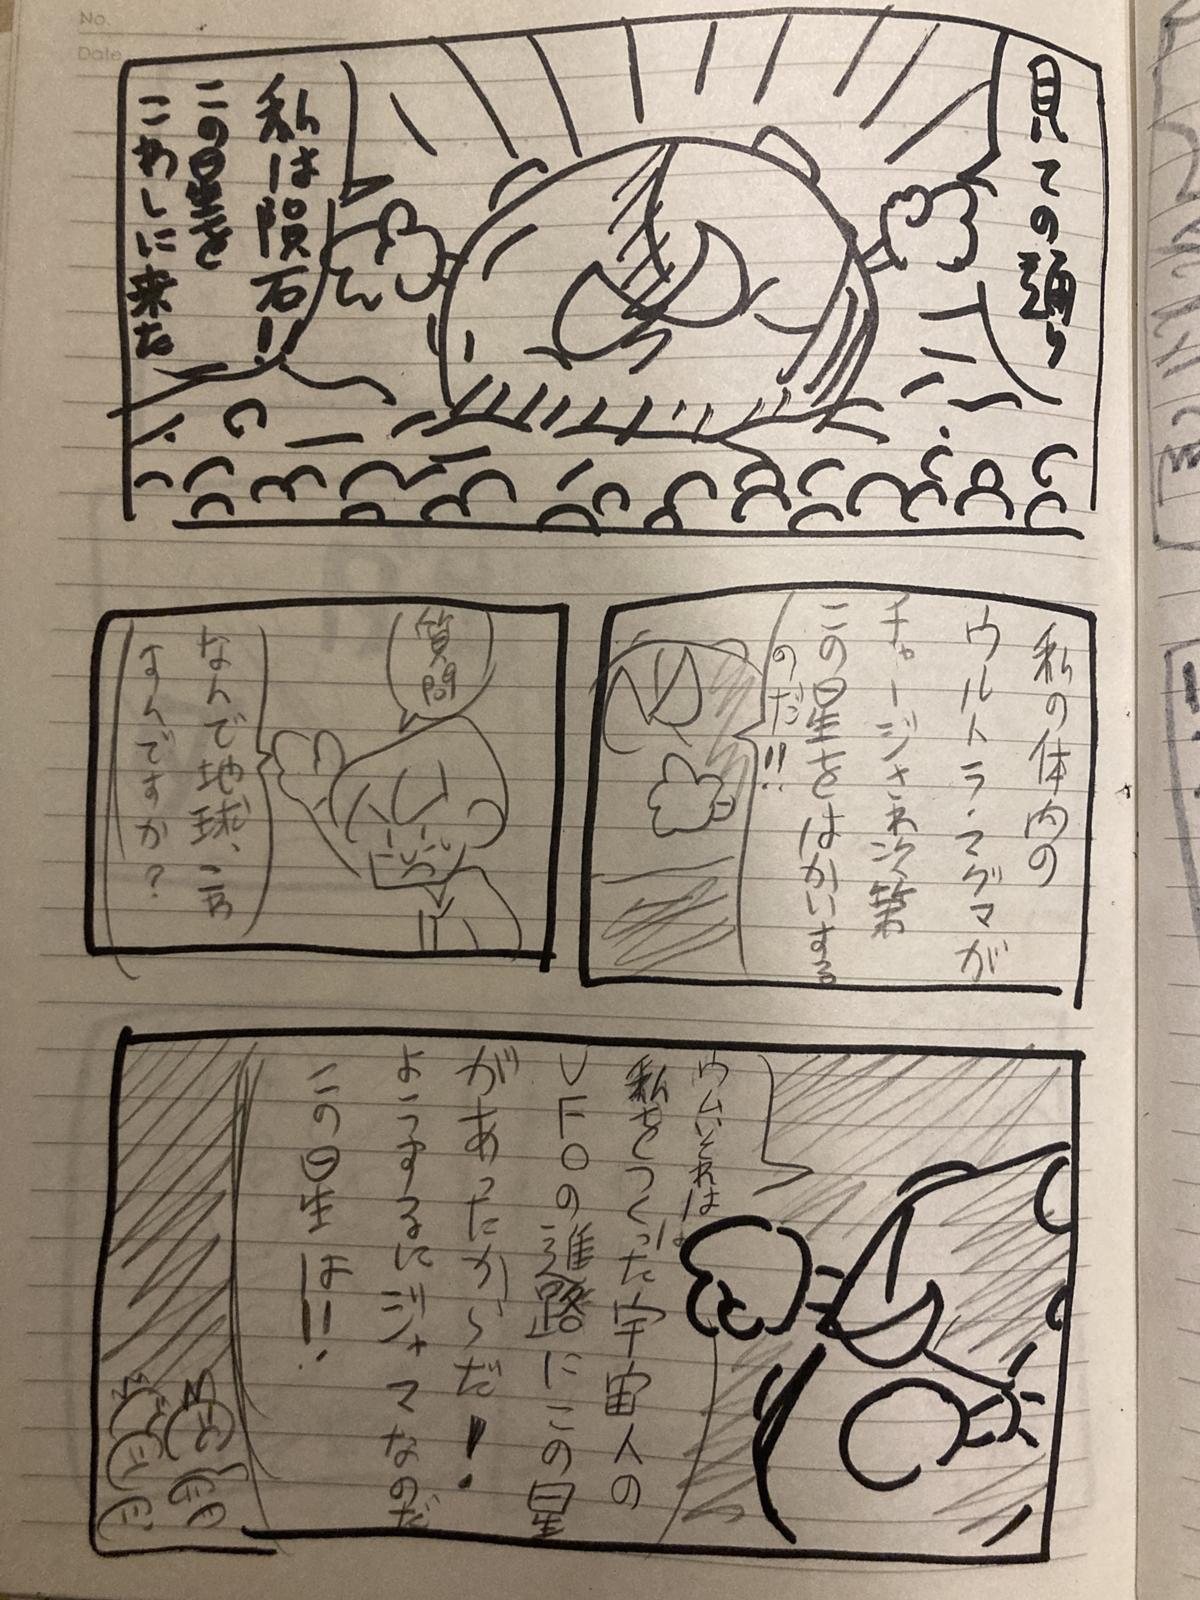 No.
Date
見ての通り
私は隕石!!
この星を
こわしに来た
私の体内の
ウルトラ・マグマが
チャージされ次第
この星をはかいする
のだ!!
質問
なんで地球、
なんですか?
ウムいそれは
私をつくった宇宙人の
UFOの進路にこの星
があったからだ!
ようするにジャマなのだ
この星は!!